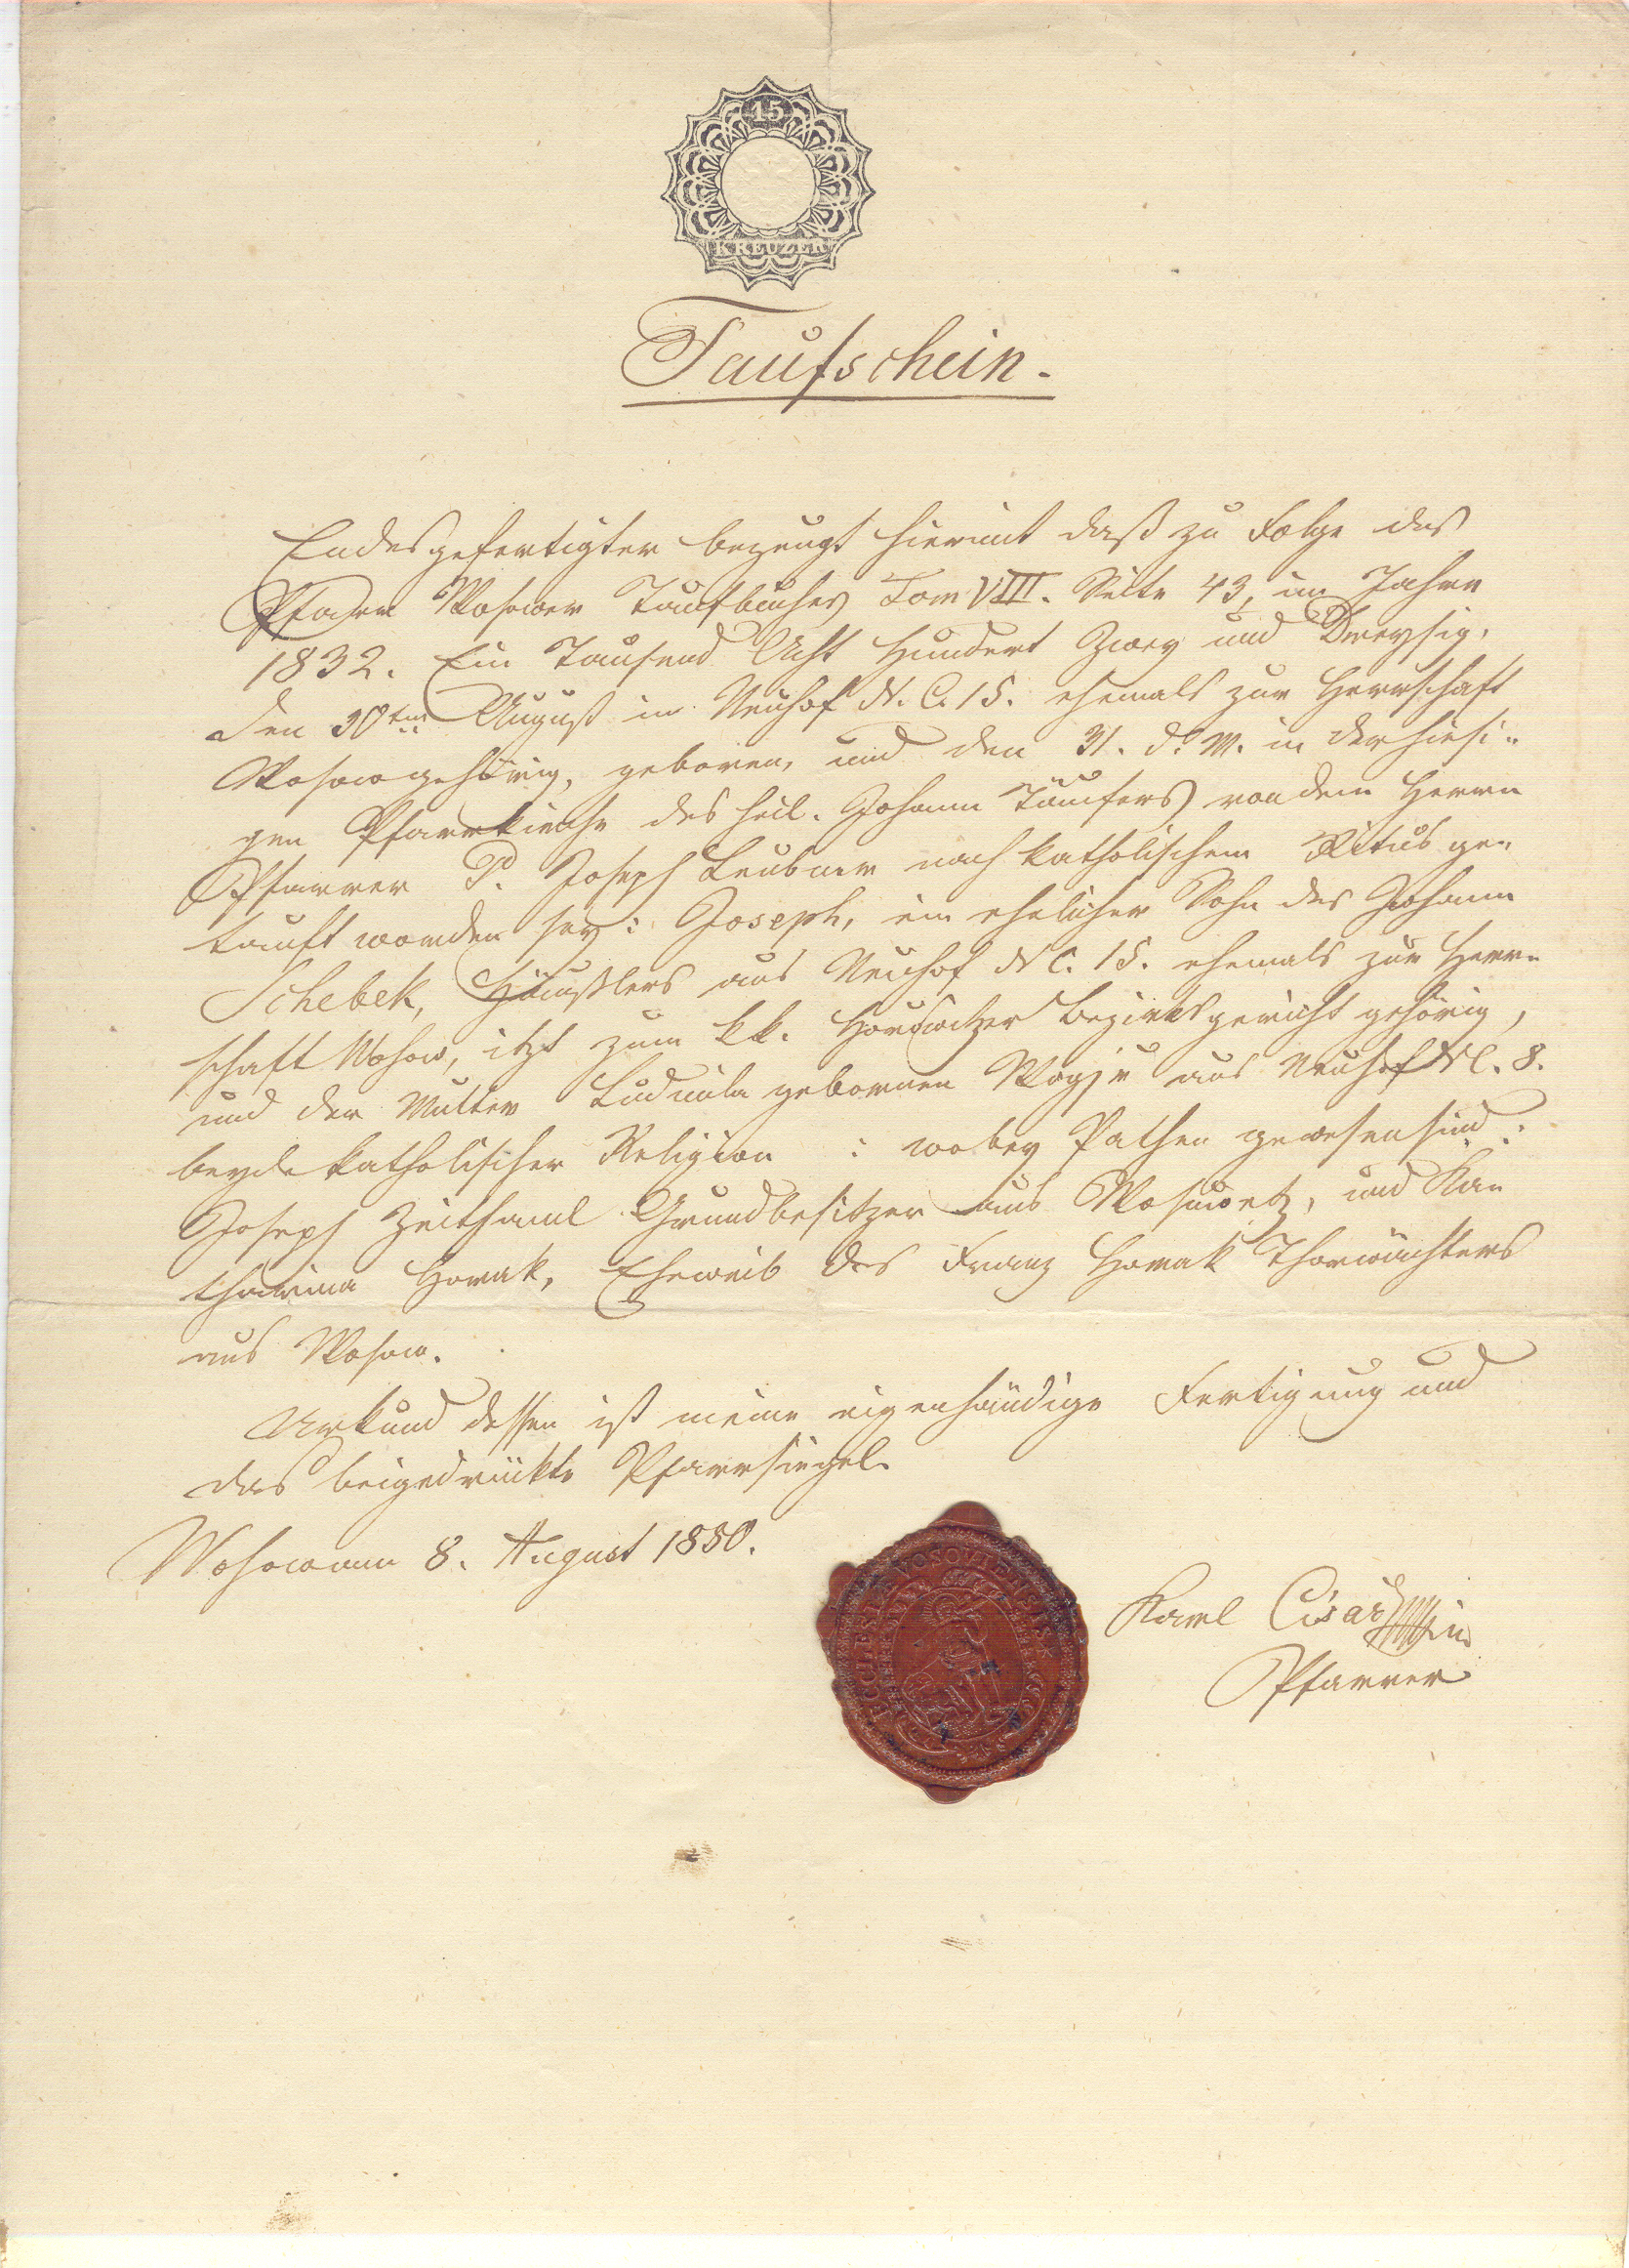 15
KREUZER
Taufschein.
Endesgefertigter bezeugt hiermit daß zu Folge des
Pfarr Wosower Taufbuches Tom VIII. Seite 43, im Jahre
1832. Ein Tausend Acht Hundert Zwey und Dreysig,
den 30ten August in Neuhof N. C. 15. ehemals zur Herrschaft
Wosow gehörig, geboren, und den 31. d. M. in der hiesi-
gen Pfarrkirche des heil. Johann Täufers von dem Herrn
Pfarrer P. Joseph Leubner nach katholischem Ritus ge-
tauft worden sey: Joseph, ein ehelicher Sohn des Johann
Schebek, Häußlers aus Neuhof N C. 15. ehemals zur Herr-
schaft Wosow, itzt zum kk. Horowitzer Bezirksgericht gehörig,
und der Mutter Ludmila gebornen aus Neuhof N C. 8.
beyde katholischer Religion : wobey Pathen gewesen sind:
Joseph Zeithaml Grundbesitzer aus und Ka-
tharina Horak, Eheweib des Franz Horak Thorwächters
aus Wosow.
Urkund dessen ist meine eigenhändige Fertigung und
das beigedrückte Pfarrsiegel.
Wosow am 8. August 1850.
Karl Cisař
Pfarrer